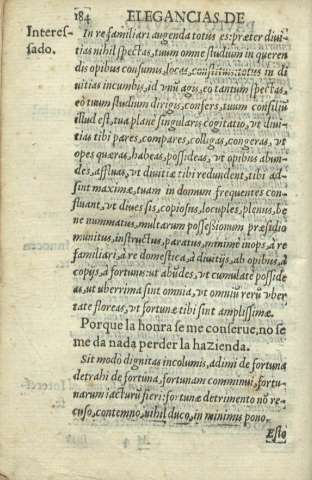 184 ELEGANCIAS DE
Interes-
sado.
In re familiari augenda totus es: præter divi-
tias nihil spectas, tuum omne studium in queren
dis opibus consumis, locas, constituis: totus in di
uitias incumbis, id vnũ agis, eo tantum spectas,
eo tuum studium dirigis, confers, tuum consiliũ
illud est, tua planè singularis cogitatio, vt diui-
tias tibi pares, compares, colligas, congeras, vt
opes quæras, habeas, possideas, vt opibus abun-
des, affluas, vt diuitiæ tibi redundent, tibi ad-
sint maximæ, tuam in domum frequentes con-
fluant, vt diues sis, copiosus, locuples, plenus, be
ne nummatus, multarum possessionum præsidio
munitus, instructus, paratus, minimè inops à re
familiari, à re domestica, à diuitijs, ab opibus, à
copijs, à fortunis: vt abũdes, vt cumulate posside
as, vt uberrima sint omnia, vt omniũ rerũ vber
tate floreas, vt fortunæ tibi sint amplissimæ.
Porque la honra se me conserue, no se
me da nada perder la hazienda.
Sit modò dignitas incolumis, adimi de fortuna
detrahi de fortuna, fortunam comminui, fortu-
narum iacturũ fieri: fortunæ detrimento nõ re-
cuso, contemno, nihil duco, in minimis pono.
Esto